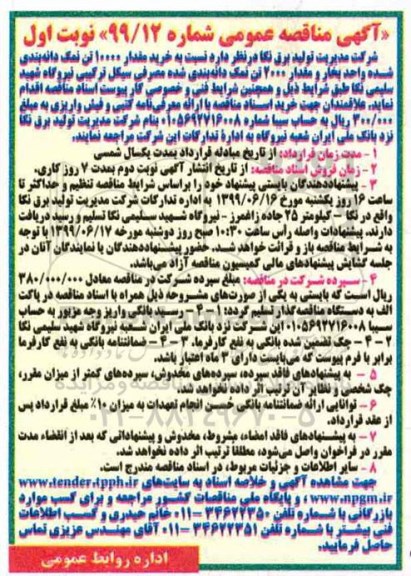 «آگهی مناقصه عمومی شماره ۹۹/۱۲» نوبت اول
شرکت مدیریت تولید برق نکا درنظر دارد نسبت به خرید مقدار ۱۰۰۰۰ تن نمک دانه‌بندی
شده واحد بخار و مقدار ۲۰۰۰ تن نمک دانه‌بندی شده مصرفی سیکل ترکیبی نیروگاه شهید
سلیمی نکا طبق شرایط ذیل و همچنین شرایط فنی و خصوصی کار پیوست اسناد مناقصه اقدام
نماید. علاقمندان جهت خرید اسناد مناقصه با ارائه معرفی‌نامه کتبی و فیش واریزی به مبلغ
۳۰۰/۰۰۰ ریال به حساب سیبا شماره ۰۱۰۵۶۹۲۷۱۶۰۰۸ بنام شرکت مدیریت تولید برق نکا
نزد بانک ملی ایران شعبه نیروگاه به اداره تدارکات این شرکت مراجعه نمایند.
۱ - مدت زمان قرارداد: از تاریخ مبادله قرارداد بمدت یکسال شمسی
۲ - زمان فروش اسناد مناقصه: از تاریخ انتشار آگهی نوبت دوم بمدت ۷ روز کاری.
۳ - پیشنهاددهندگان بایستی پیشنهاد خود را براساس شرایط مناقصه تنظیم و حداکثر تا
ساعت ۱۶ روز یکشنبه مورخ ۱۳۹۹/۰۶/۱۶ به اداره تدارکات شرکت مدیریت تولید برق نکا
واقع در نکا - کیلومتر ۲۵ جاده زاغمرز - نیروگاه شهید سلیمی نکا تسلیم و رسید دریافت
دارند. پیشنهادات واصله رأس ساعت ۱۰:۳۰ صبح روز دوشنبه مورخه ۱۳۹۹/۰۶/۱۷ با توجه
به شرایط مناقصه باز و قرائت خواهد شد. حضور پیشنهاددهندگان یا نمایندگان آنان در
جلسه گشایش پیشنهادهای مالی کمیسیون مناقصه آزاد می‌باشد.
۴ - سپرده شرکت در مناقصه: مبلغ سپرده شرکت در مناقصه معادل ۳۸۰/۰۰۰/۰۰۰
ریال است که بایستی به یکی از صورت‌های مشروحه ذیل همراه با اسناد مناقصه در پاکت
الف به دستگاه مناقصه گذار تسلیم گردد: ۱ - ۴ - رسید بانکی واریز وجه مزبور به حساب
سیبا ۰۱۰۵۶۹۲۷۱۶۰۰۸ این شرکت نزد بانک ملی ایران شعبه نیروگاه شهید سلیمی نکا
۲ - ۴ - چک تضمین شده بانکی به نفع کارفرما. ۳ - ۴ - ضمانتنامه بانکی به نفع کارفرما
برابر با فرم پیوست که می‌بایست دارای ۳ ماه اعتبار باشد.
۵ - به پیشنهادهای فاقد سپرده، سپرده‌های مخدوش، سپرده‌های کمتر از میزان مقرر،
چک شخصی و نظایر آن ترتیب اثر داده نخواهد شد.
۶ - توانایی ارائه ضمانتنامه بانکی حُسن انجام تعهدات به میزان ۱۰٪ مبلغ قرارداد پس
از عقد قرارداد.
۷ - به پیشنهادهای فاقد امضاء، مشروط، مخدوش و پیشنهاداتی که بعد از انقضاء مدت
مقرر در فراخوان واصل می‌شود، مطلقا ترتیب اثر داده نخواهد شد.
۸ - سایر اطلاعات و جزئیات مربوط، در اسناد مناقصه مندرج است.
جهت مشاهده آگهی و خلاصه اسناد به سایت‌های www.tender.tpph.ir
www.npgm.ir ، و پایگاه ملی مناقصات کشور مراجعه و برای کسب موارد
بازرگانی با شماره تلفن ۳۴۶۲۲۳۵۰-۰۱۱ خانم حیدری و کسب اطلاعات
فنی بیشتر با شماره تلفن ۳۴۶۲۲۳۵۱-۰۱۱ آقای مهندس عزیزی تماس
حاصل فرمایید.
اداره روابط عمومی